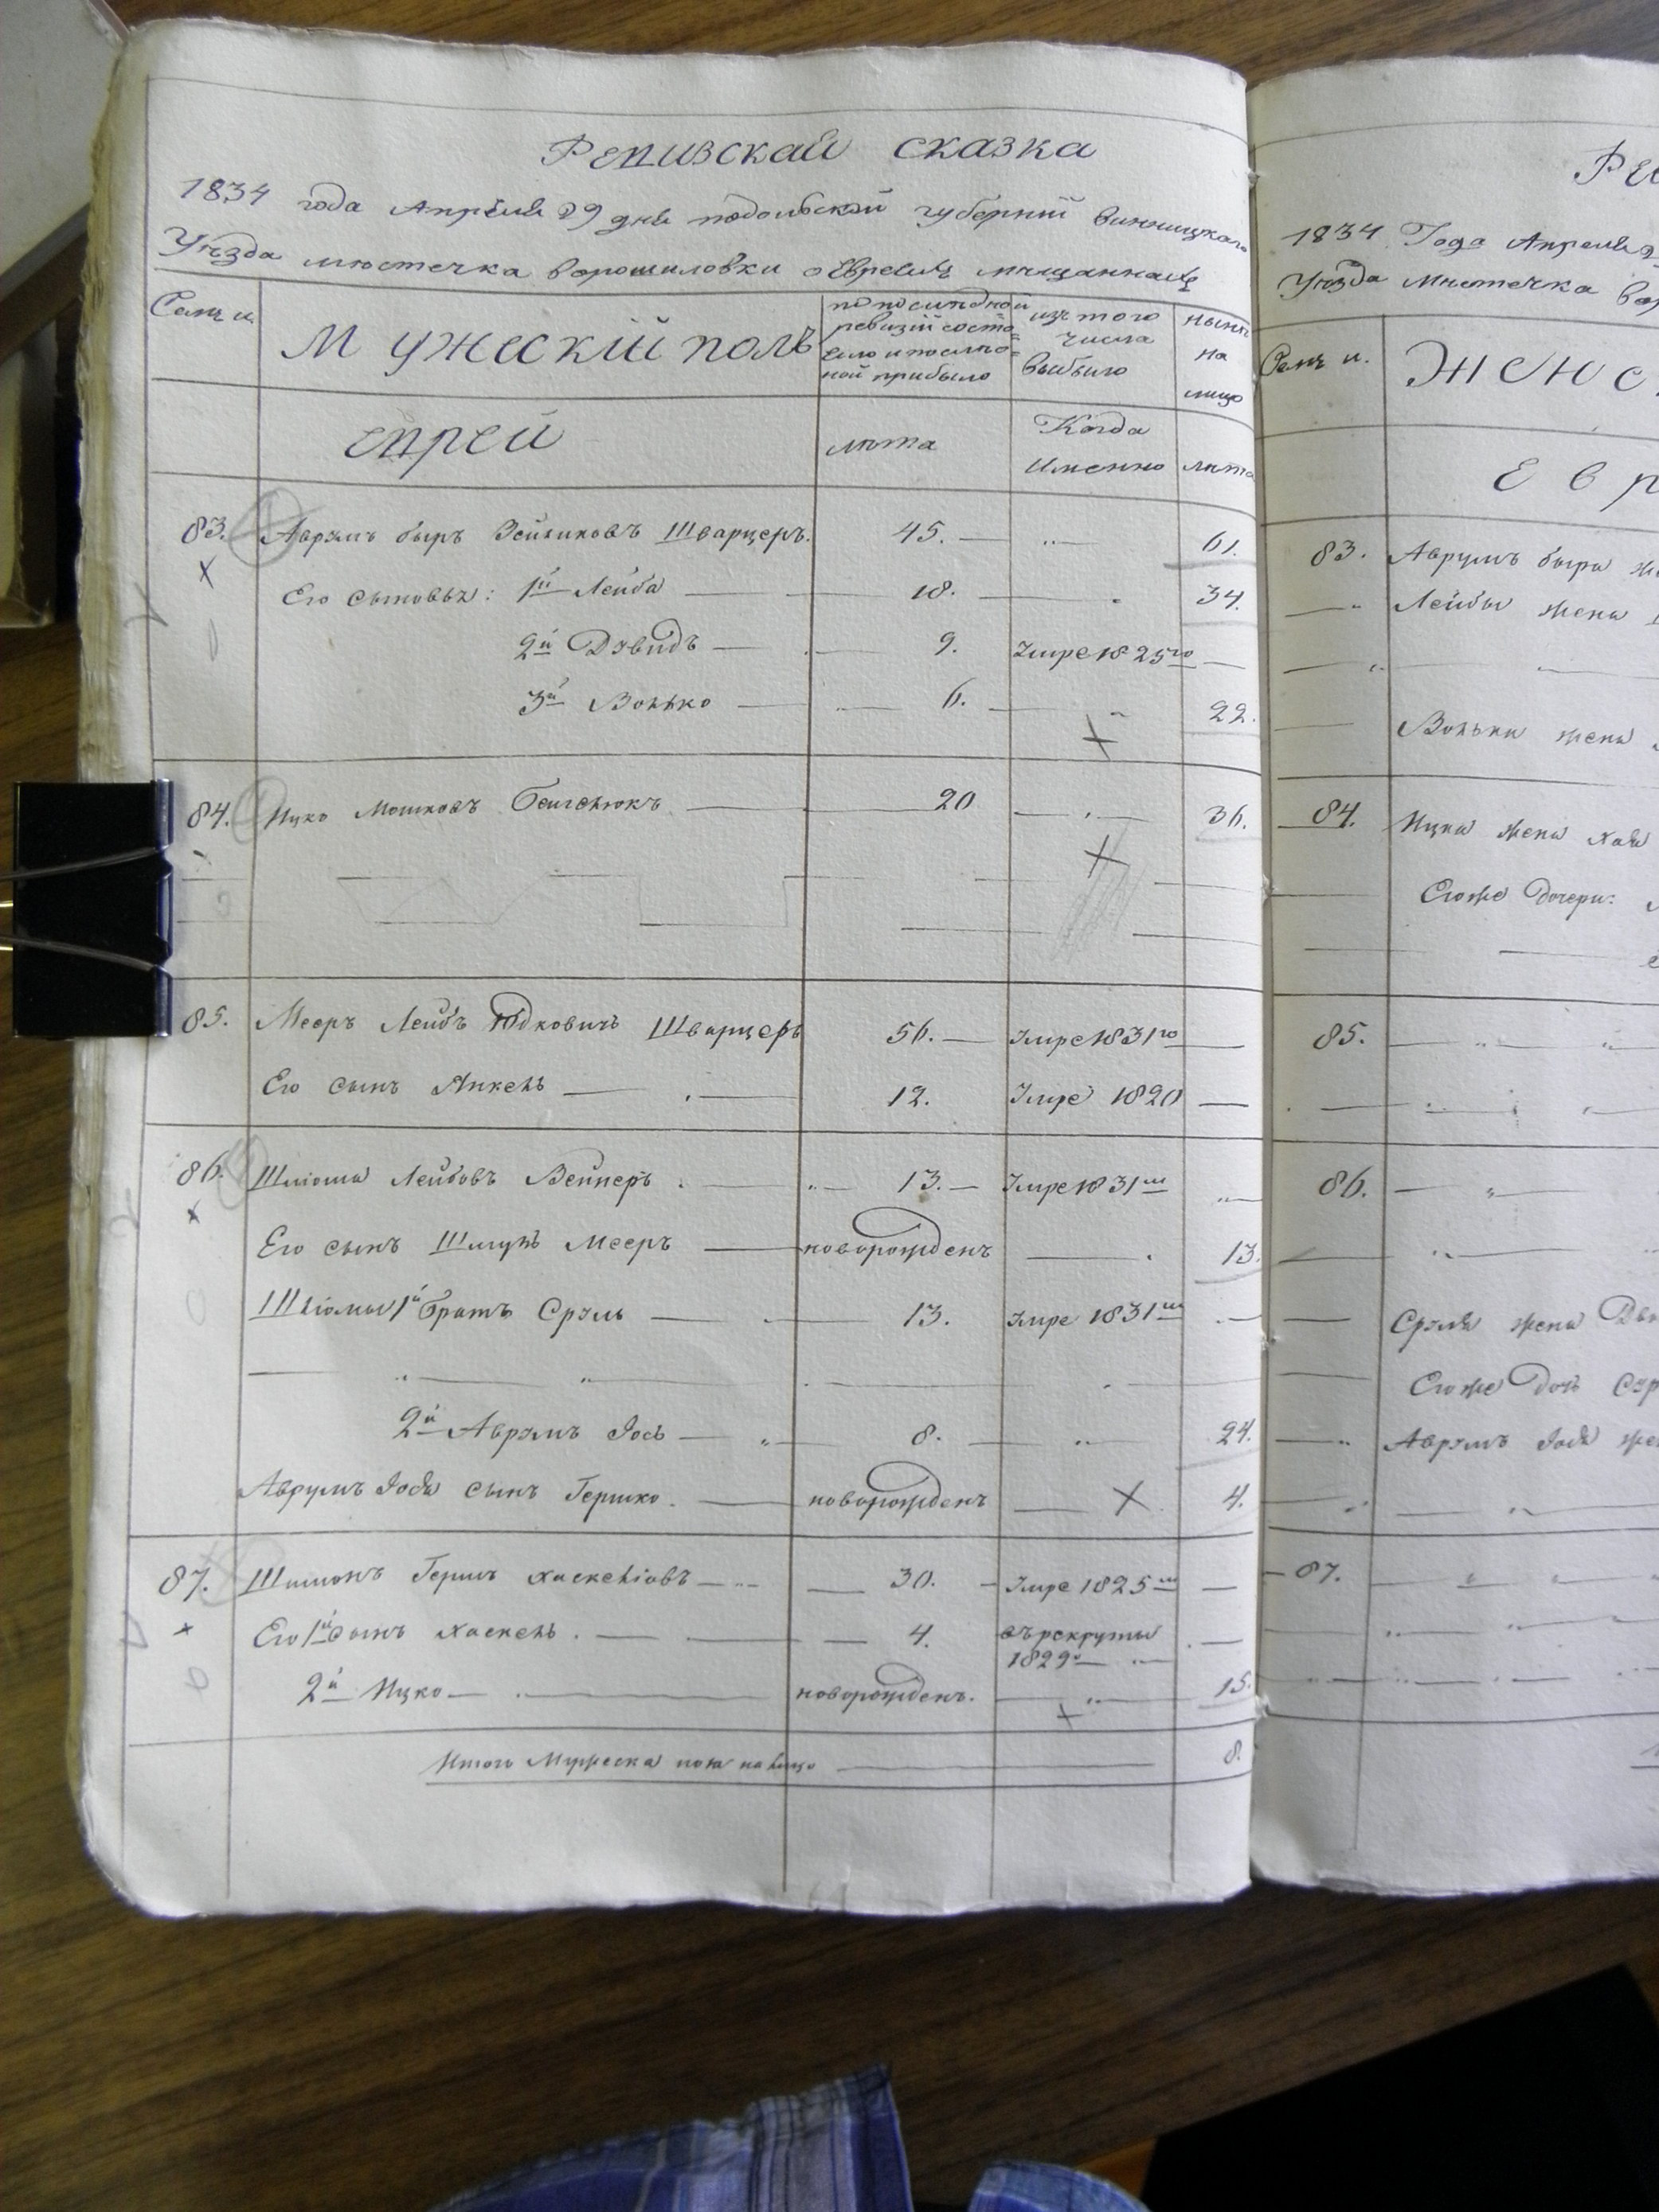 Ревизская сказка
1834 года Апреля 29 дня подольской губерній винницкаго
Уезда местечка ворошиловки о Евреяхъ мещаннахъ
Мужескій полъ
по последной ревизій состо=яло и после=ной прибыло
изъ того числа выбыло
ныне на лицо
еврей
лета
Когда Именно
лета
83. Аврумъ беръ Зейликовъ Шварцеръ. 45. 61.
Его сыновья: 1й Лейба 18. 34.
2й Дувидъ 9. Умре 1825го
3й Волько 6. 22.
84. Ицко Мошковъ 20 36.
85. Мееръ Лейбъ Юдковичъ Шварцеръ 56. Умре 1831го
Его сынъ Анкель 12. Умре 1820
86. Шліома Лейбовъ Вейнеръ. 13. Умре 1831м
Его сынъ Шмуль Мееръ новорожденъ 13.
Шліомы 1й братъ Сруль 13. Умре 1831м
2й Аврумъ Іось 8. 24.
Аврумъ Іося сынъ Гершко. новорожденъ 4.
87. Шимонъ Гершъ Хаскеліовъ 30. Умре 1825м
Его 1й сынъ Хаскель. 4. въ рекруты 1829
2й Ицко новорожденъ. 15.
Итого Мужеска пола на лицо 8.
1834 Года Апреля
Уезда Местечка
Женс
Евр
83. Аврумъ бера
Лейбы жена
Волька жена
84. Ицка жена хая
Егоже дочери:
85.
86.
Сруля жена
Егоже дочь
Аврумъ Іося
87.